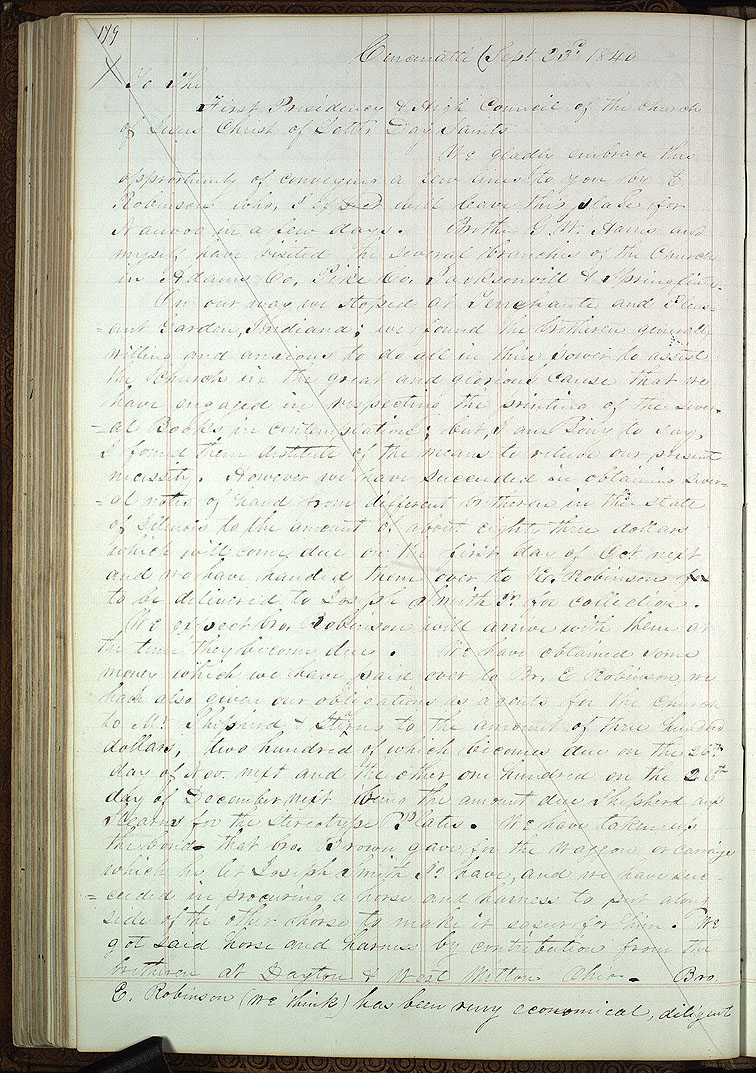 179
Cincinatti (Sept. 23d. 1840
To The
First Presidency & High Council of the Church
of Jesus Christ of Latter Day Saints
We gladly embrace this
opportunity of conveying a few lines to you by E
Robinson who, I expect will leave this place for
Nauvoo in a few days. Brother G. W. Harris and
myself have visited the several branches of the Church
in Adams Co, Pike Co. Jacksonvill & Springfield.
On our way we stoped at and Pleas-
=ant Garden, Indiana; we found the bretheren generaly
willing and anxious to do all in thier power to assist
the Church in the great and glorious cause that we
have engaged in, respecting the printing of the sever-
=al Books in contemplation; but, I am sorry to say,
I found them destitute of the means to releive our present
necessity. However we have succeeded in obtaining sever-
=al notes of hand from different bretheren in the State
of Illinois to the amount of about eighty three dollars
which will come due on the first day of Oct next
and we have handed them over to E. Robinson
to be delivered to Joseph Smith Jr. for collection.
We expect bro. Robinson will arrive with them at
the time they become due. We have obtained some
money which we have paid over to Br. E Robinson, we
have also given our obligations as agents for the Church
to Mr Shepherd & Sterns to the amount of three hundred
dollars, two hundred of which becomes due on the 26th
day of Nov. next and the other one hundred on the 26th
day of December next being the amount due Shepherd and
Stearns for the Stereotype Plates. We have taken up
the bond that bro. Brown gave for the Waggon or carriage
which he let Joseph Smith Jr. have, and we have suc-
=ceeded in procuring a horse and harness to put along
side of the other horse to make it sesure for him. We
got said horse and harness by contribution from the
bretheren at Dayton & West Milton Ohio. Bro.
E. Robinson (we think) has been very economical, diligent